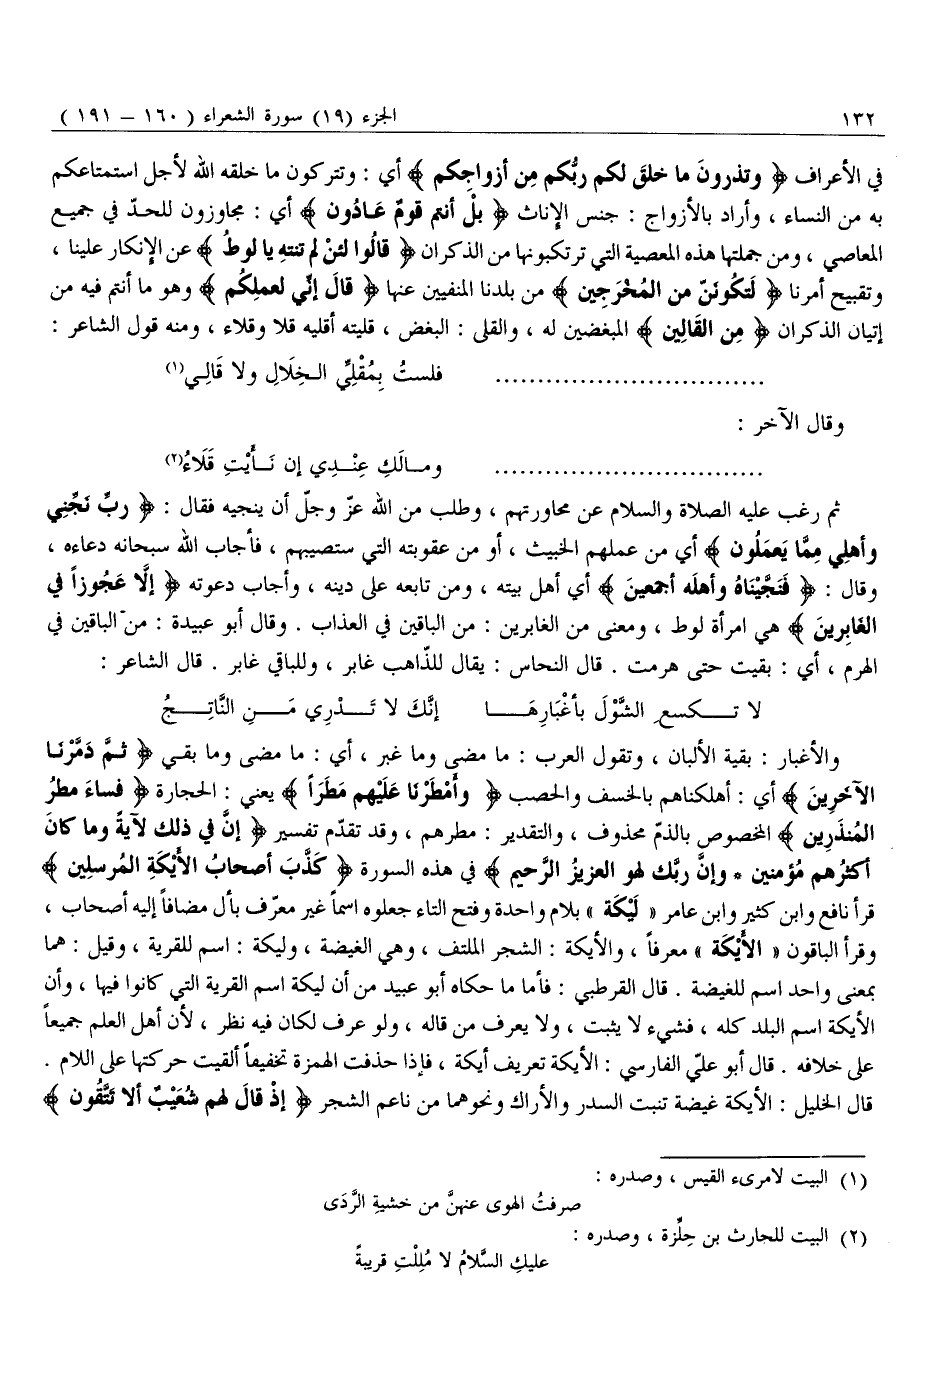 ١٣٢ الجزء (١٩) سورة الشعراء ( ١٦٠ – ١٩١ )
في الأعراف ﴿ وتذرونَ ما خلقَ لكم ربُّكم مِن أزواجِكم ﴾ أي : وتتركون ما خلقه الله لأجل استمتاعكم
به من النساء ، وأراد بالأزواج : جنس الإناث ﴿ بلْ أنتم قومٌ عَادُون ﴾ أي : مجاوزون للحدّ في جميع
المعاصي ، ومن جملتها هذه المعصية التي ترتكبونها من الذكران ﴿ قالُوا لئنْ لم تنتهِ يا لوطُ ﴾ عن الإنكار علينا ،
وتقبيح أمرنا ﴿ لَتكُوننّ من المُخْرَجِين ﴾ من بلدنا المنفيين عنها ﴿ قالَ إنِّي لعملِكُم ﴾ وهو ما أنتم فيه من
إتيان الذكران ﴿ مِن القَالِين ﴾ المبغضين له ، والقلى : البغض ، قليته أقليه قلا وقلاء ، ومنه قول الشاعر :
................................ فلستُ بِمُقْلِّي الخِلَالِ ولا قَالِي(١)
وقال الآخر :
................................ ومالَكِ عِنْدِي إن نَأَيْتِ قَلَاءُ(٢)
ثم رغب عليه الصلاة والسلام عن محاورتهم ، وطلب من الله عزّ وجلّ أن ينجيه فقال : ﴿ ربِّ نَجِّنِي
وأهلِي مِمَّا يَعمَلُون ﴾ أي من عملهم الخبيث ، أو من عقوبته التي ستصيبهم ، فأجاب الله سبحانه دعاءه ،
وقال : ﴿ فَنَجَّيْنَاهُ وأهلَه أجمعينَ ﴾ أي أهل بيته ، ومن تابعه على دينه ، وأجاب دعوته ﴿ إلَّا عَجُوزاً في
الغَابِرينَ ﴾ هي امرأة لوط ، ومعنى من الغابرين : من الباقين في العذاب . وقال أبو عبيدة : من الباقين في
الهرم ، أي : بقيت حتى هرمت . قال النحاس : يقال للذّاهب غابر ، وللباقي غابر . قال الشاعر :
لا تكسعِ الشَّوْلَ بأغْبَارِهَا إنَّكَ لا تَدْرِي مَنِ النَّاتِجُ
والأغبار : بقية الألبان ، وتقول العرب : ما مضى وما غبر ، أي : ما مضى وما بقي ﴿ ثمَّ دَمَّرْنَا
الآخَرِينَ ﴾ أي : أهلكناهم بالخسف والحصب ﴿ وأَمْطَرْنَا عَلَيْهم مَطَرَاً ﴾ يعني : الحجارة ﴿ فساءَ مطرُ
المُنذَرِين ﴾ المخصوص بالذمّ محذوف ، والتقدير : مطرهم ، وقد تقدّم تفسير ﴿ إنَّ في ذلك لآيةً وما كانَ
أكثرُهم مُؤمنين * وإنَّ ربَّك لهو العزيزُ الرَّحيم ﴾ في هذه السورة ﴿ كَذَّبَ أصحابُ الأَيْكَةِ المُرسلِين ﴾
قرأ نافع وابن كثير وابن عامر « لَيْكَة » بلام واحدة وفتح التاء جعلوه اسماً غير معرّف بأل مضافاً إليه أصحاب ،
وقرأ الباقون « الأَيْكَة » معرفاً ، والأيكة : الشجر الملتف ، وهي الغيضة ، وليكة : اسم للقرية ، وقيل : هما
بمعنى واحد اسم للغيضة . قال القرطبي : فأما ما حكاه أبو عبيد من أن ليكة اسم القرية التي كانوا فيها ، وأن
الأيكة اسم البلد كله ، فشيء لا يثبت ، ولا يعرف من قاله ، ولو عرف لكان فيه نظر ، لأن أهل العلم جميعاً
على خلافه . قال أبو عليّ الفارسي : الأيكة تعريف أيكة ، فإذا حذفت الهمزة تخفيفاً ألقيت حركتها على اللام .
قال الخليل : الأيكة غيضة تنبت السدر والأراك ونحوهما من ناعم الشجر ﴿ إذْ قالَ لهم شُعَيْبٌ ألا تَتَّقُون ﴾
(١) البيت لامرىء القيس ، وصدره :
صرفتُ الهوى عنهنَّ من خشيةِ الرَّدَى
(٢) البيت للحارث بن حِلِّزة ، وصدره :
عليكِ السَّلامُ لا مُلِلْتِ قريبةً